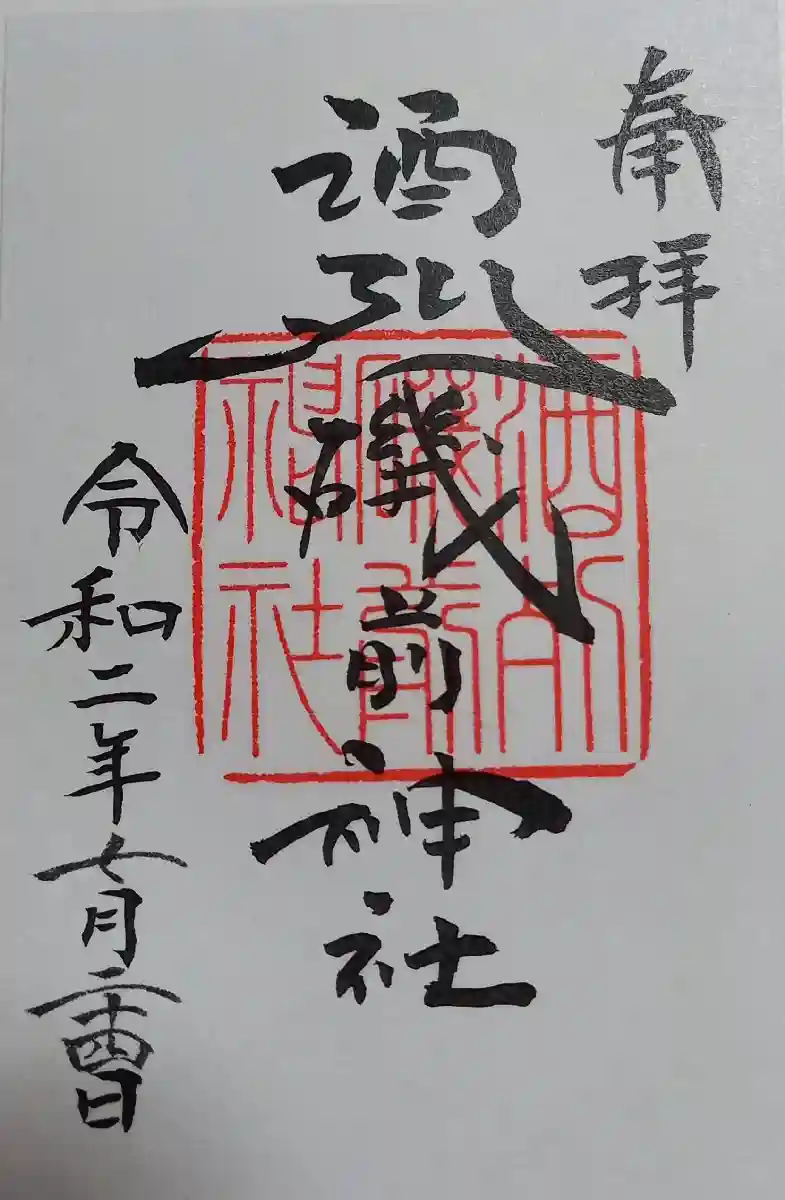 奉拝
酒列磯前神社
令和二年七月二十四日
酒列
磯前
神社